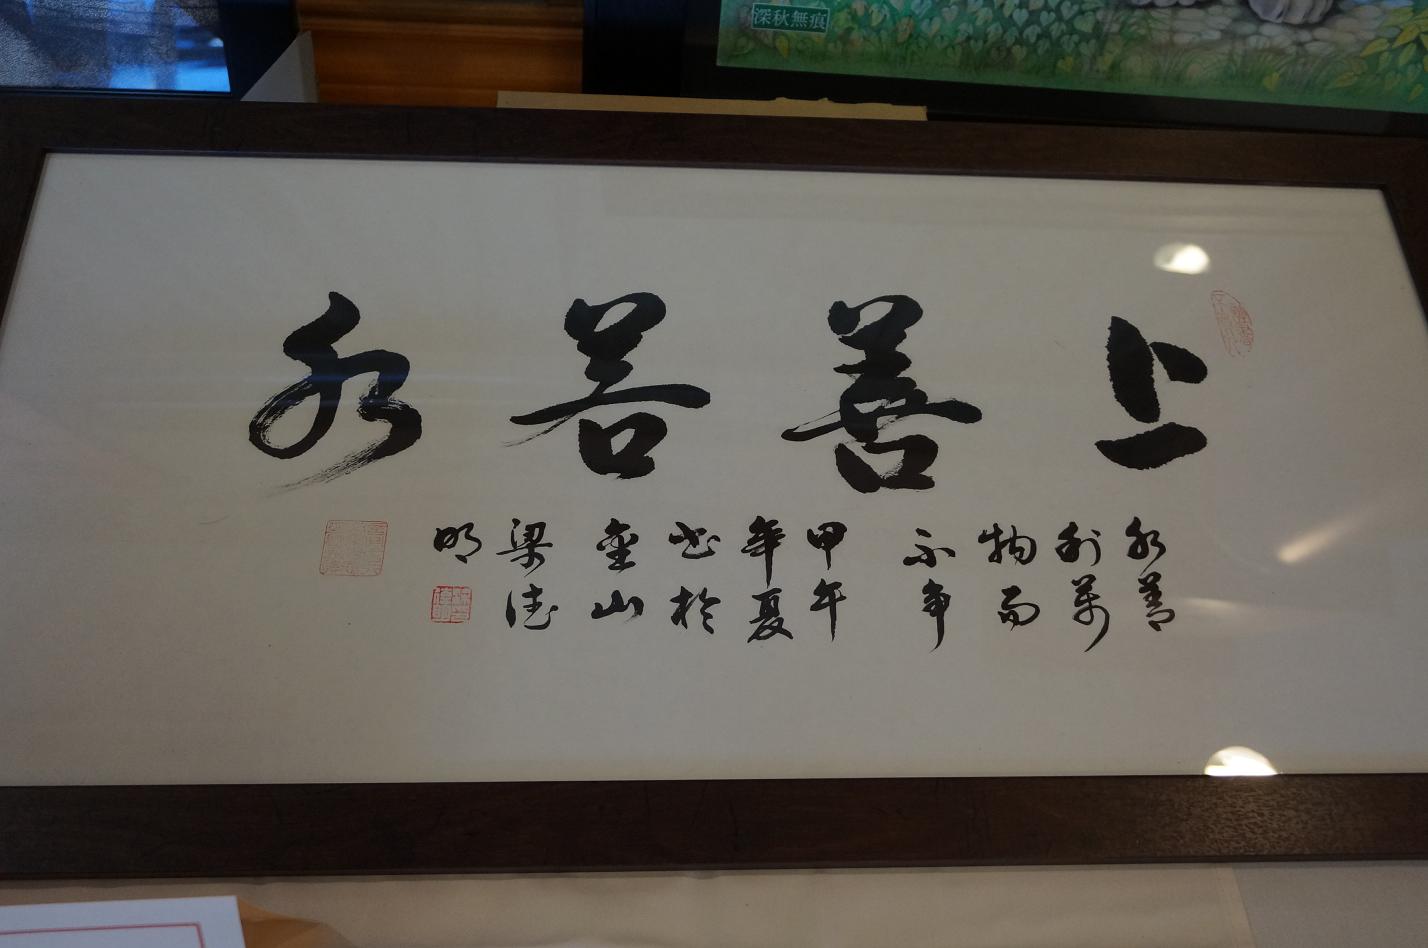 深秋無痕
上善若水
水善利萬物而不爭
甲午年夏書於金山
梁德明